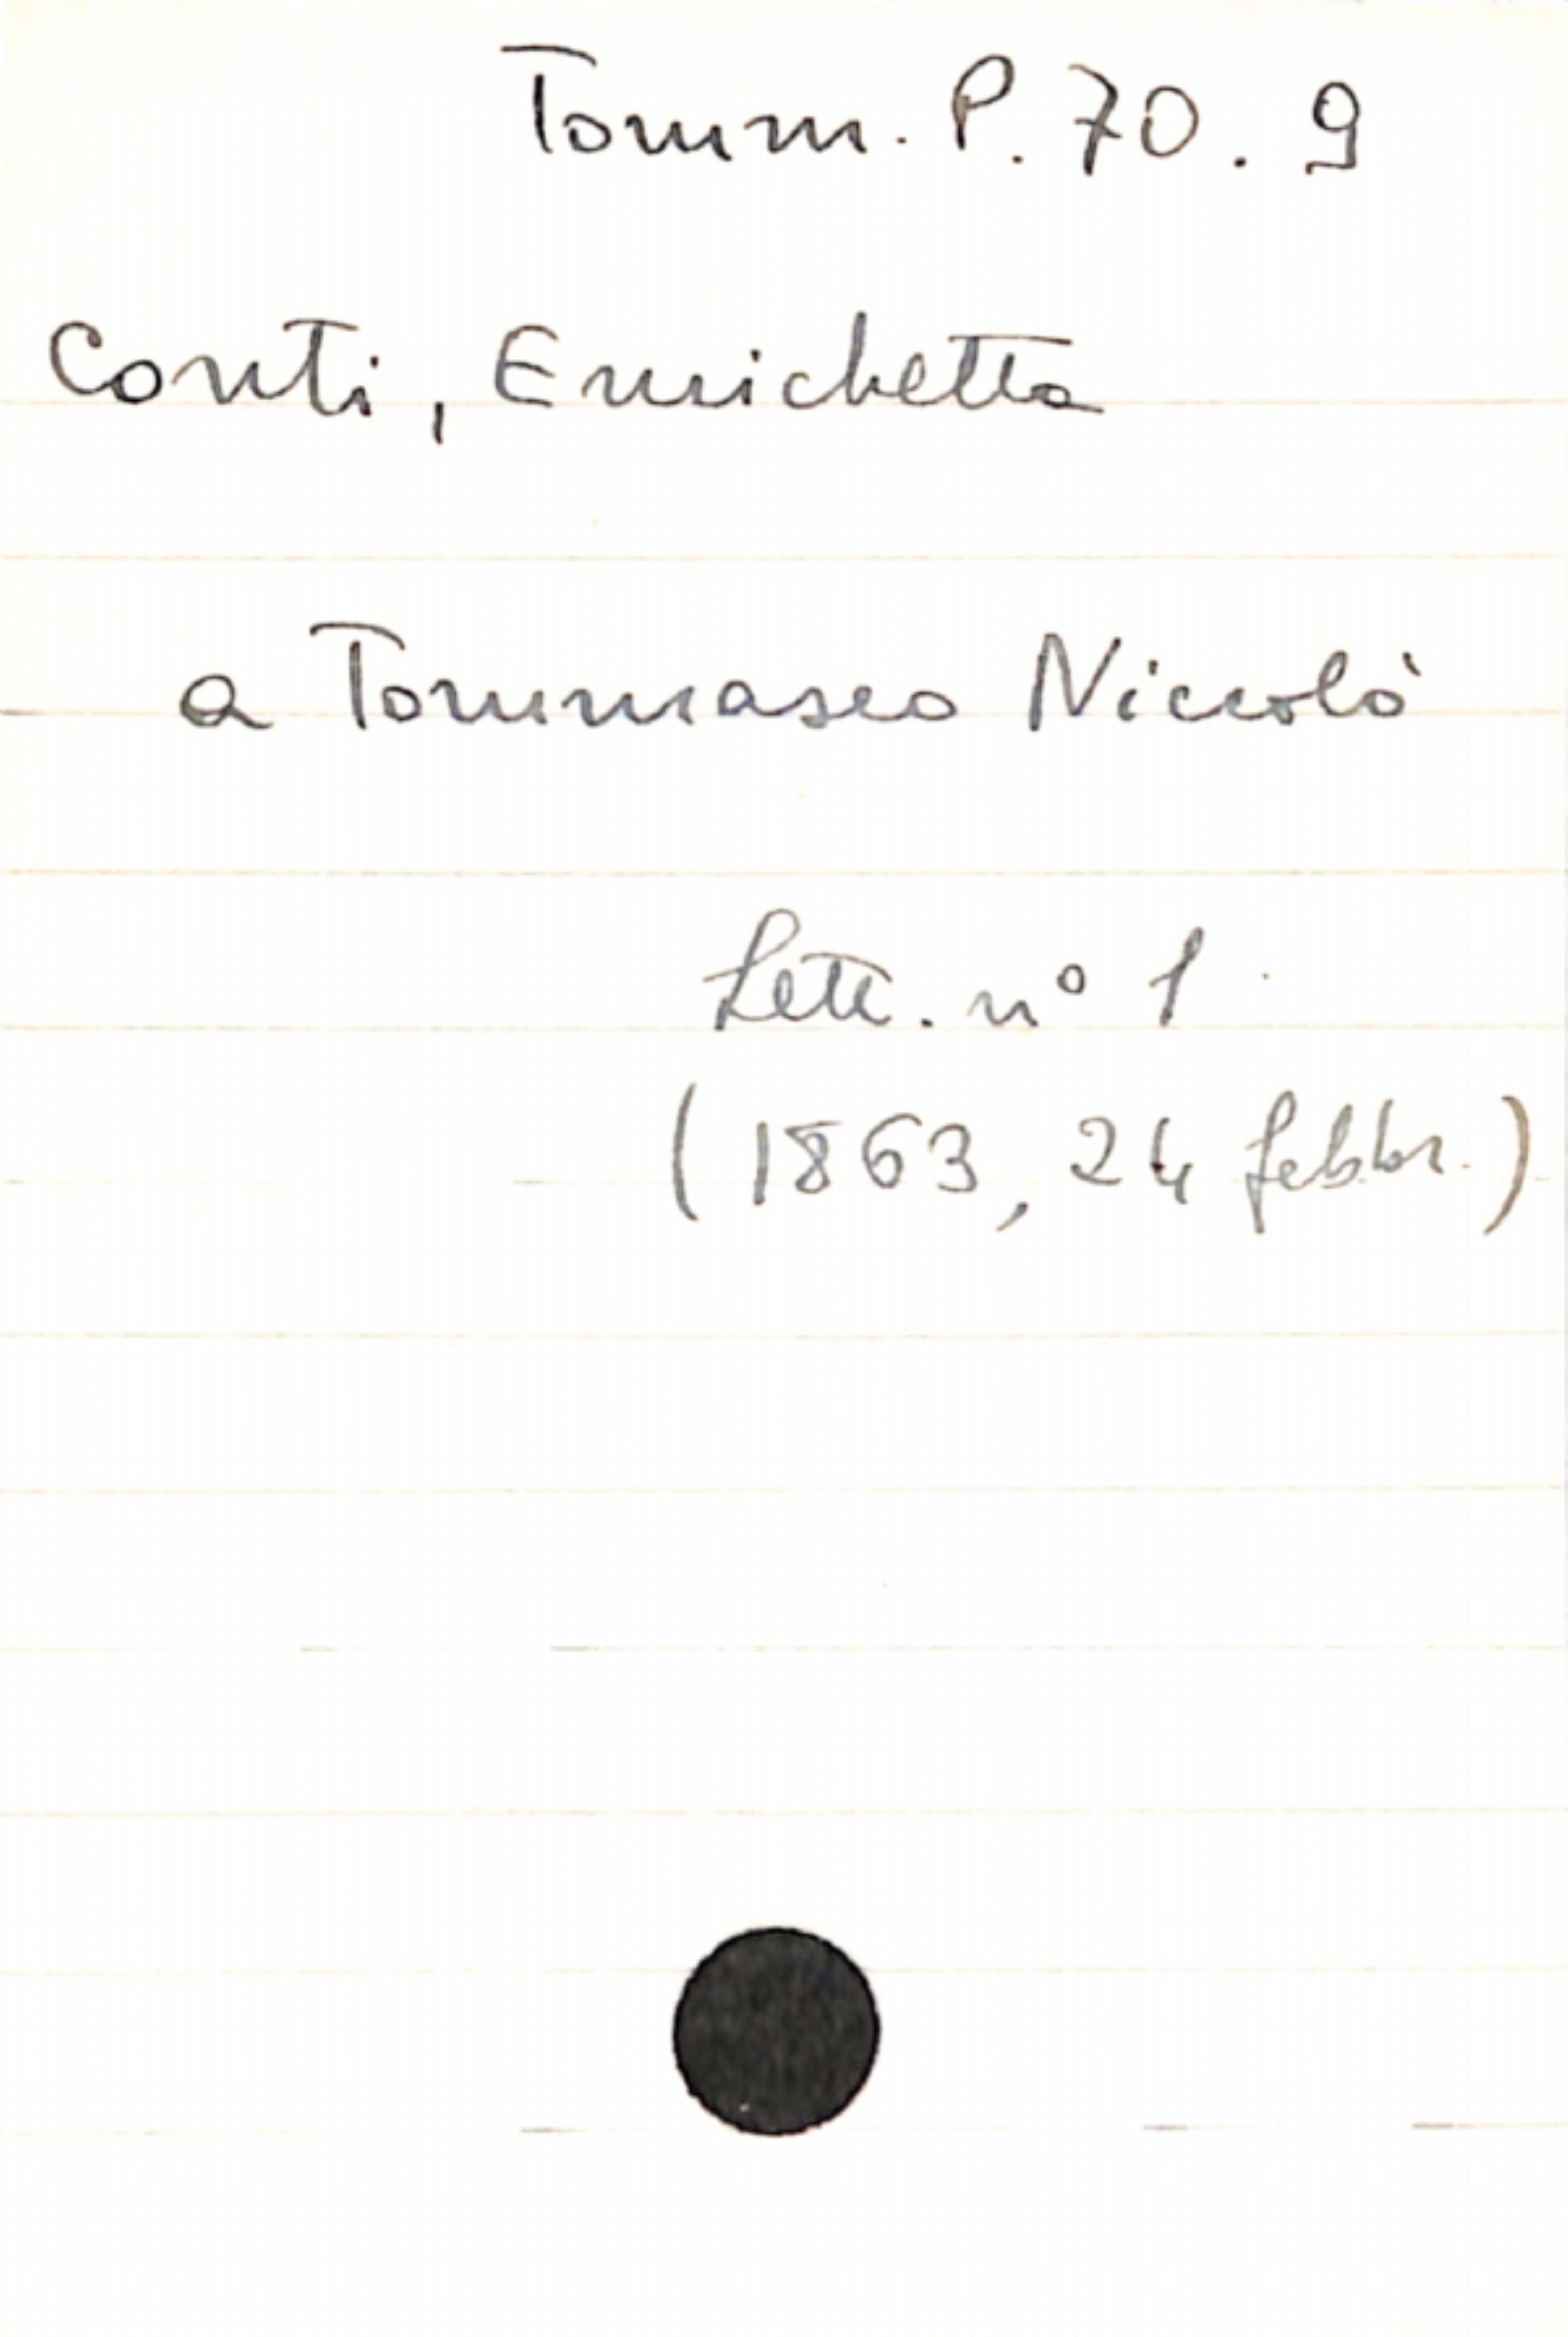 Tomm. P. 70. 9
Conti, Enrichetta
a Tommaseo Niccolò
Lett. n° 1
(1863, 24 febbr.)